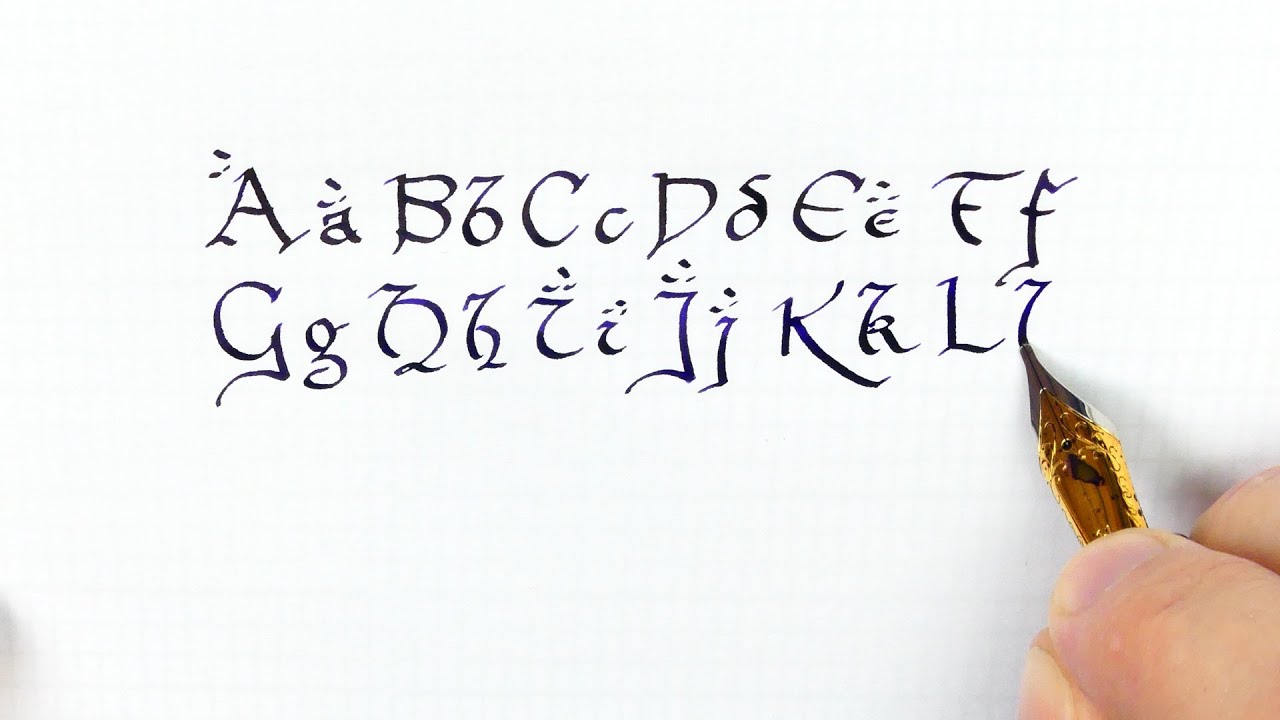 Aa Bb Cc Dd Ee Ff
Gg Hh Ii Jj Kk Ll